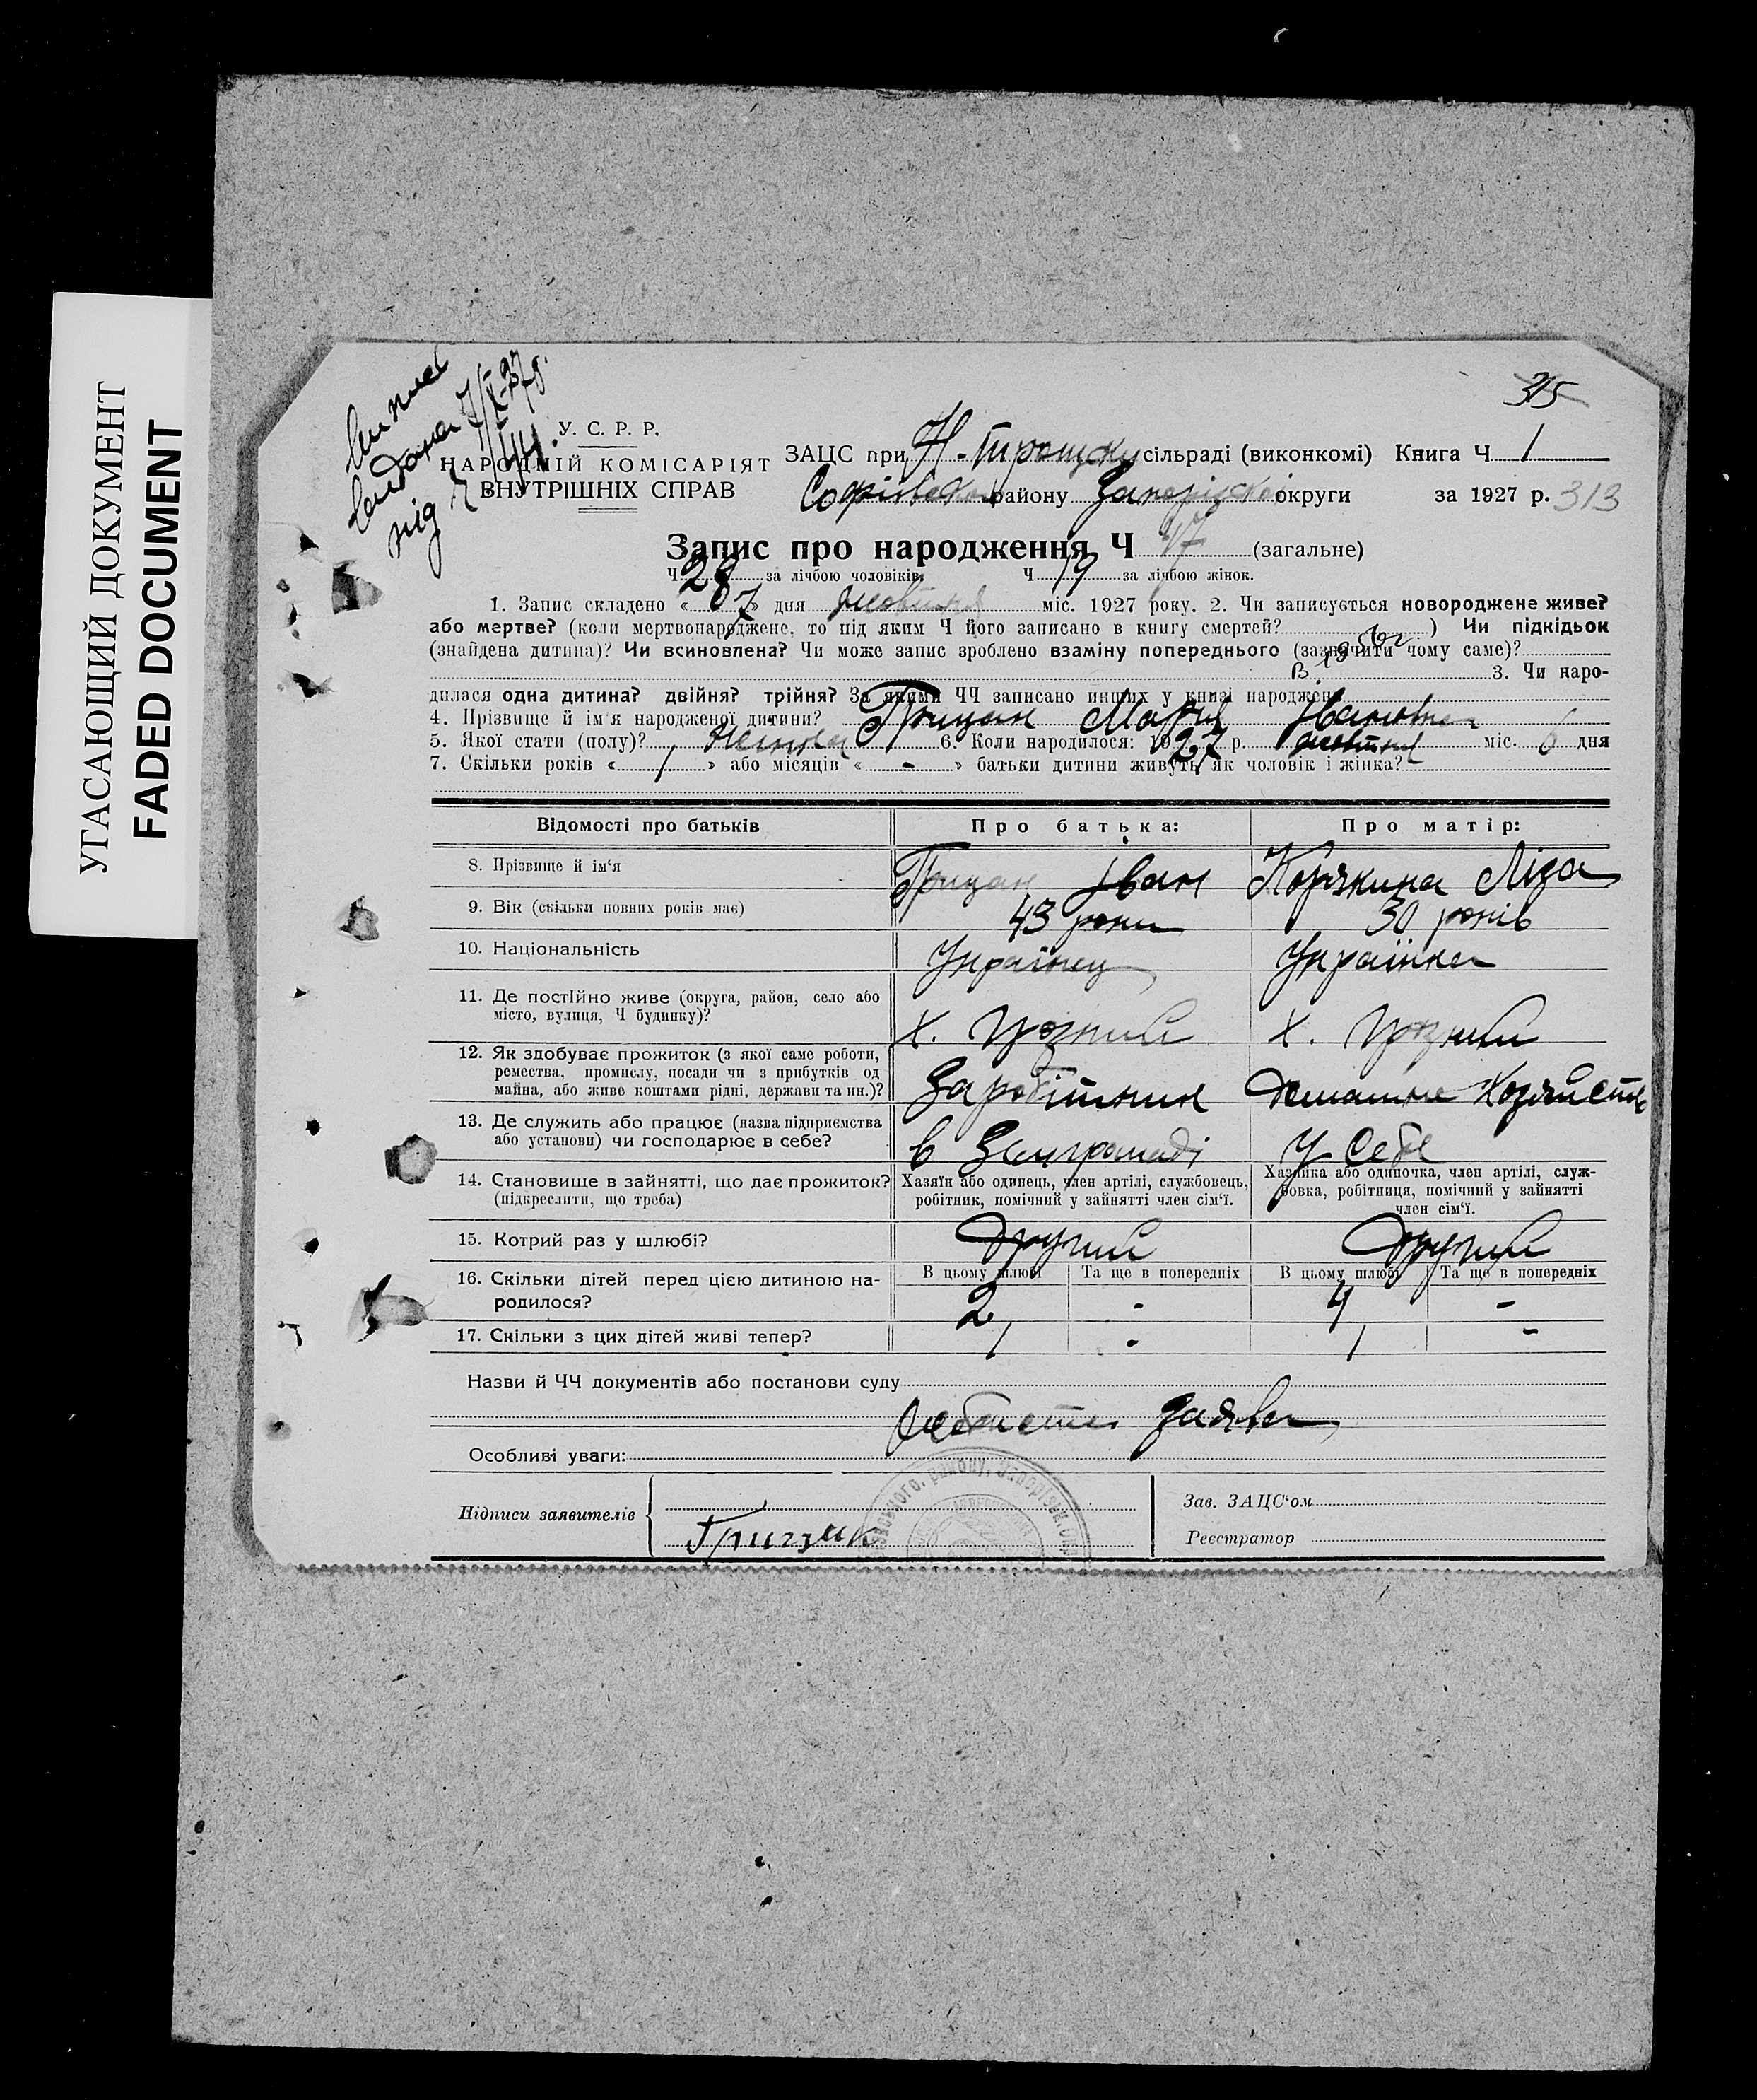 УГАСАЮЩИЙ ДОКУМЕНТ
FADED DOCUMENT
315
видана 7/IX-37р.
під Ч 144.
У. С. Р. Р.
НАРОДНІЙ КОМІСАРІЯТ
ВНУТРІШНІХ СПРАВ
ЗАЦС при Н-Троицку сільраді (виконкомі) Книга Ч 1
Софіївського району Запорізької округи за 1927 р. 313
Запис про народження Ч 47 (загальне)
Ч 28 за лічбою чоловіків. Ч 19 за лічбою жінок.
1. Запис складено « 7» дня жовтня міс. 1927 року. 2. Чи записується новороджене живе?
або мертве? (коли мертвонароджене, то під яким Ч його записано в книгу смертей? ) Чи підкідьок
(знайдена дитина)? Чи всиновлена? Чи може запис зроблено взаміну попереднього (зазначити чому саме)?
3. Чи наро-
дилася одна дитина? двійня? трійня? За якими ЧЧ записано инших у книзі народжень
4. Прізвище й ім'я народженої дитини? Грицан Марія Івановна
5. Якої стати (полу)? жінка 6. Коли народилося: 1927 р. жовтня міс. 6 дня
7. Скільки років « 1 » або місяців « - » батьки дитини живуть як чоловік і жінка?
Відомості про батьків Про батька: Про матір:
8. Прізвище й ім'я Грицан Іван Корякина Ліза
9. Вік (скільки повних років має) 43 роки 30 років
10. Національність Українец Українка
11. Де постІйно живе (округа, район, село або
місто, вулиця, Ч будинку)? х. Грозний х. Грозний
12. Як здобуває прожиток (з якої саме роботи,
ремества, промислу, посади чи з прибутків од
майна, або живе коштами рідні, держави та ин.)? Заробітник Домашне Хозяйство
13. Де служить або працює (назва підприємства
або установи) чи господарює в себе? в Земгромаді У Себе
14. Становище в зайнятті, що дає прожиток? Хазяїн або одинець, член артілі, службовець, Хазяйка або одиночка, член артілі, служ-
(підкреслити, що треба) робітник, помічний у зайнятті член сім'ї. бовка, робітниця, помічний у зайнятті
член сім'ї.
15. Котрий раз у шлюбі? Другий Другий
16. Скільки дітей перед цією дитиною на- В цьому шлюбі Та ще в попередніх В цьому шлюбі Та ще в попередніх
родилося? 2 - 4 -
17. Скільки з цих дітей живі тепер? 1 - 1 -
Назви й ЧЧ документів або постанови суду
Особиста заява
Особливі уваги:
Підписи заявителів Зав. ЗАЦС'ом
Грицан Реєстратор